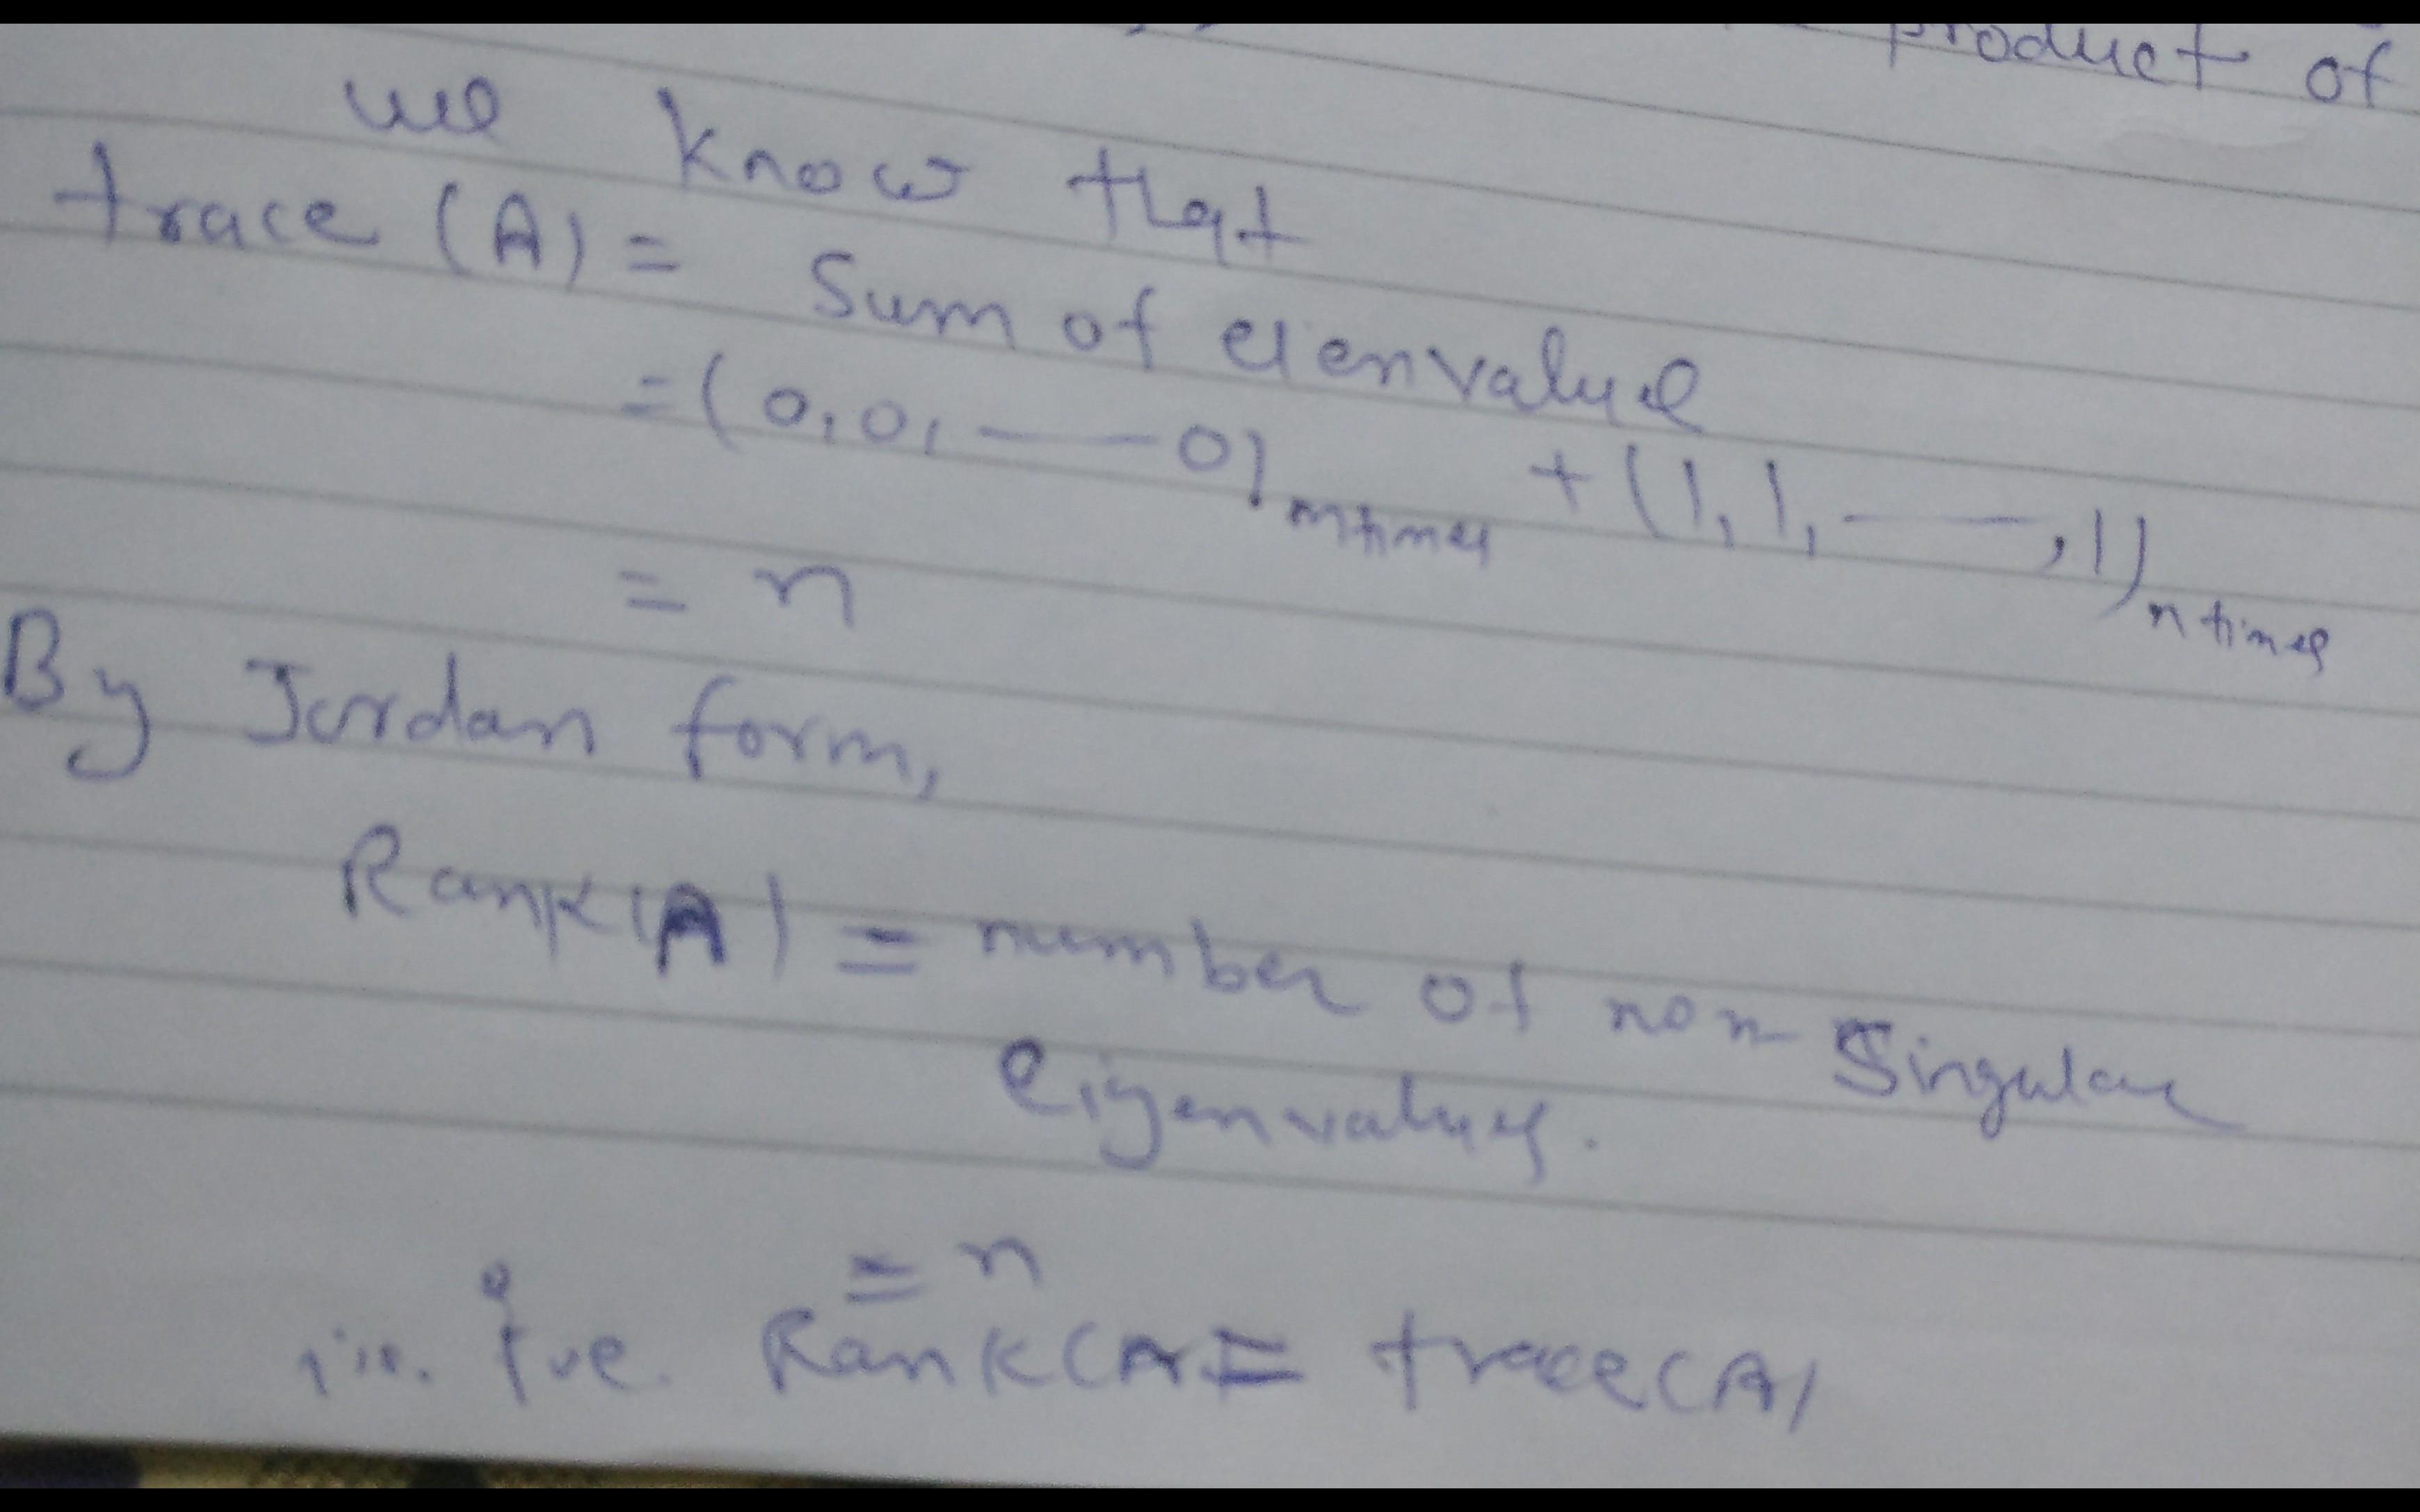 product of
we know that
trace (A) = Sum of eienvalue
= (0, 0, — 0) m times + (1, 1, —, 1) n times
= n
By Jordan form,
Rank(A) = number of non-Singular
eigenvalues.
= n
i.e. Rank(A) = trace(A)